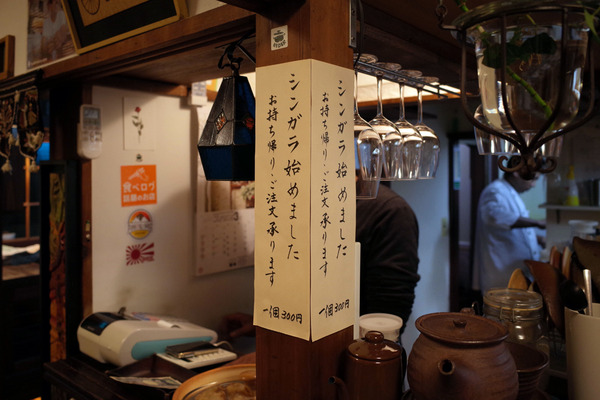 シンガラ始めました
お持ち帰り・ご注文承ります
一個300円
シンガラ始めました
お持ち帰り・ご注文承ります
一個300円
食べログ
話題のお店